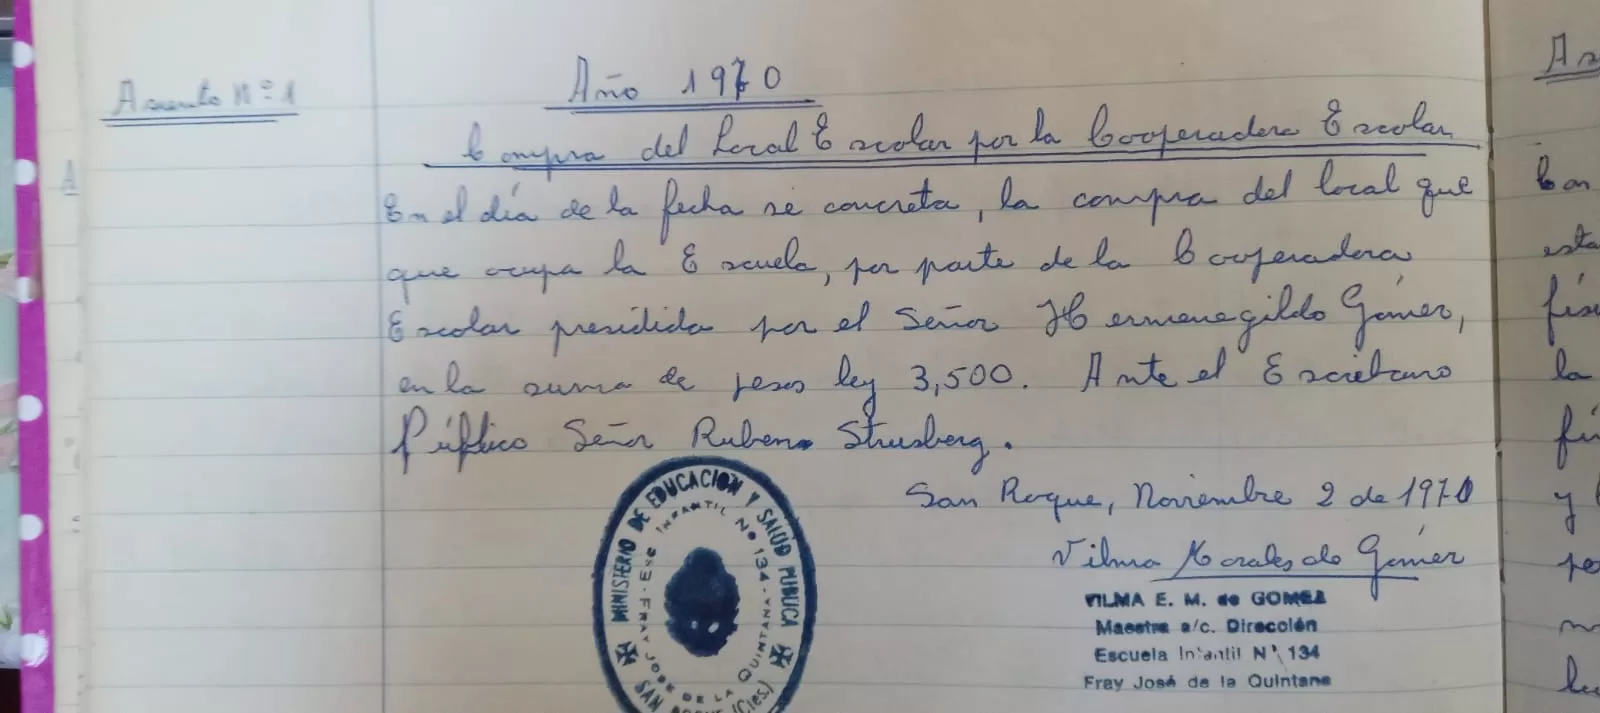 Asiento Nº 1
Año 1970
Compra del Local Escolar por la Cooperadora Escolar
En el día de la fecha se concreta, la compra del local que
que ocupa la Escuela, por parte de la Cooperadora
Escolar presidida por el Señor Hermenegildo Gómez,
en la suma de pesos ley 3,500. Ante el Escribano
Público Señor Ruben Strusberg.
San Roque, Noviembre 2 de 1970
Vilma Morales de Gómez
VILMA E. M. de GOMEZ
Maestra a/c. Dirección
Escuela Infantil N° 134
Fray José de la Quintana
MINISTERIO DE EDUCACION Y SALUD PUBLICA
ESC. INFANTIL Nº 134 - FRAY JOSE DE LA QUINTANA
SAN ROQUE (Ctes.)
As
Con
esta
la
y